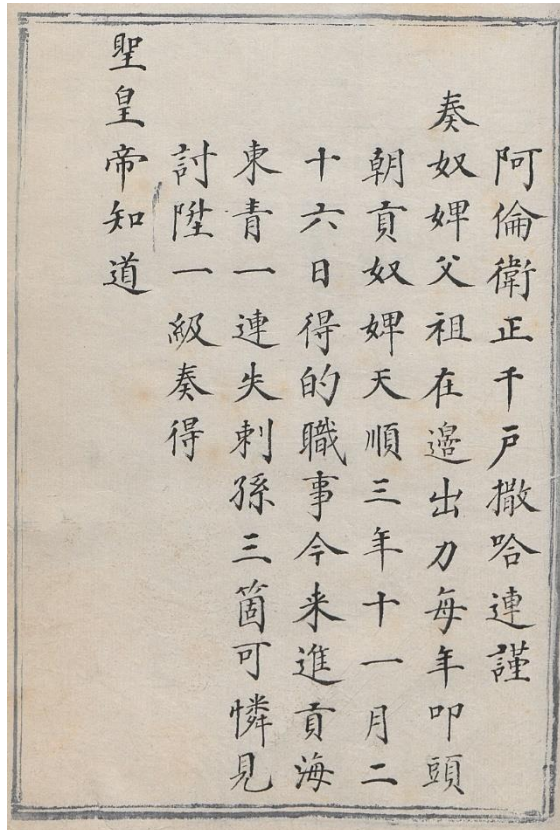 阿倫衛正千戶撒哈連謹
奏奴婢父祖在邉出力每年叩頭
朝貢奴婢天順三年十一月二
十六日得的職事今来進貢海
東青一連失剌孫三箇可憐見
討陞一級奏得
聖皇帝知道